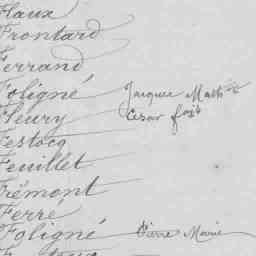 Flaux
Frontard
Ferrand
Foligné Jacques Math
Fleury Cesar
Festocq
Feuillet
Frémont
Ferré
Foligné Pierre Marie